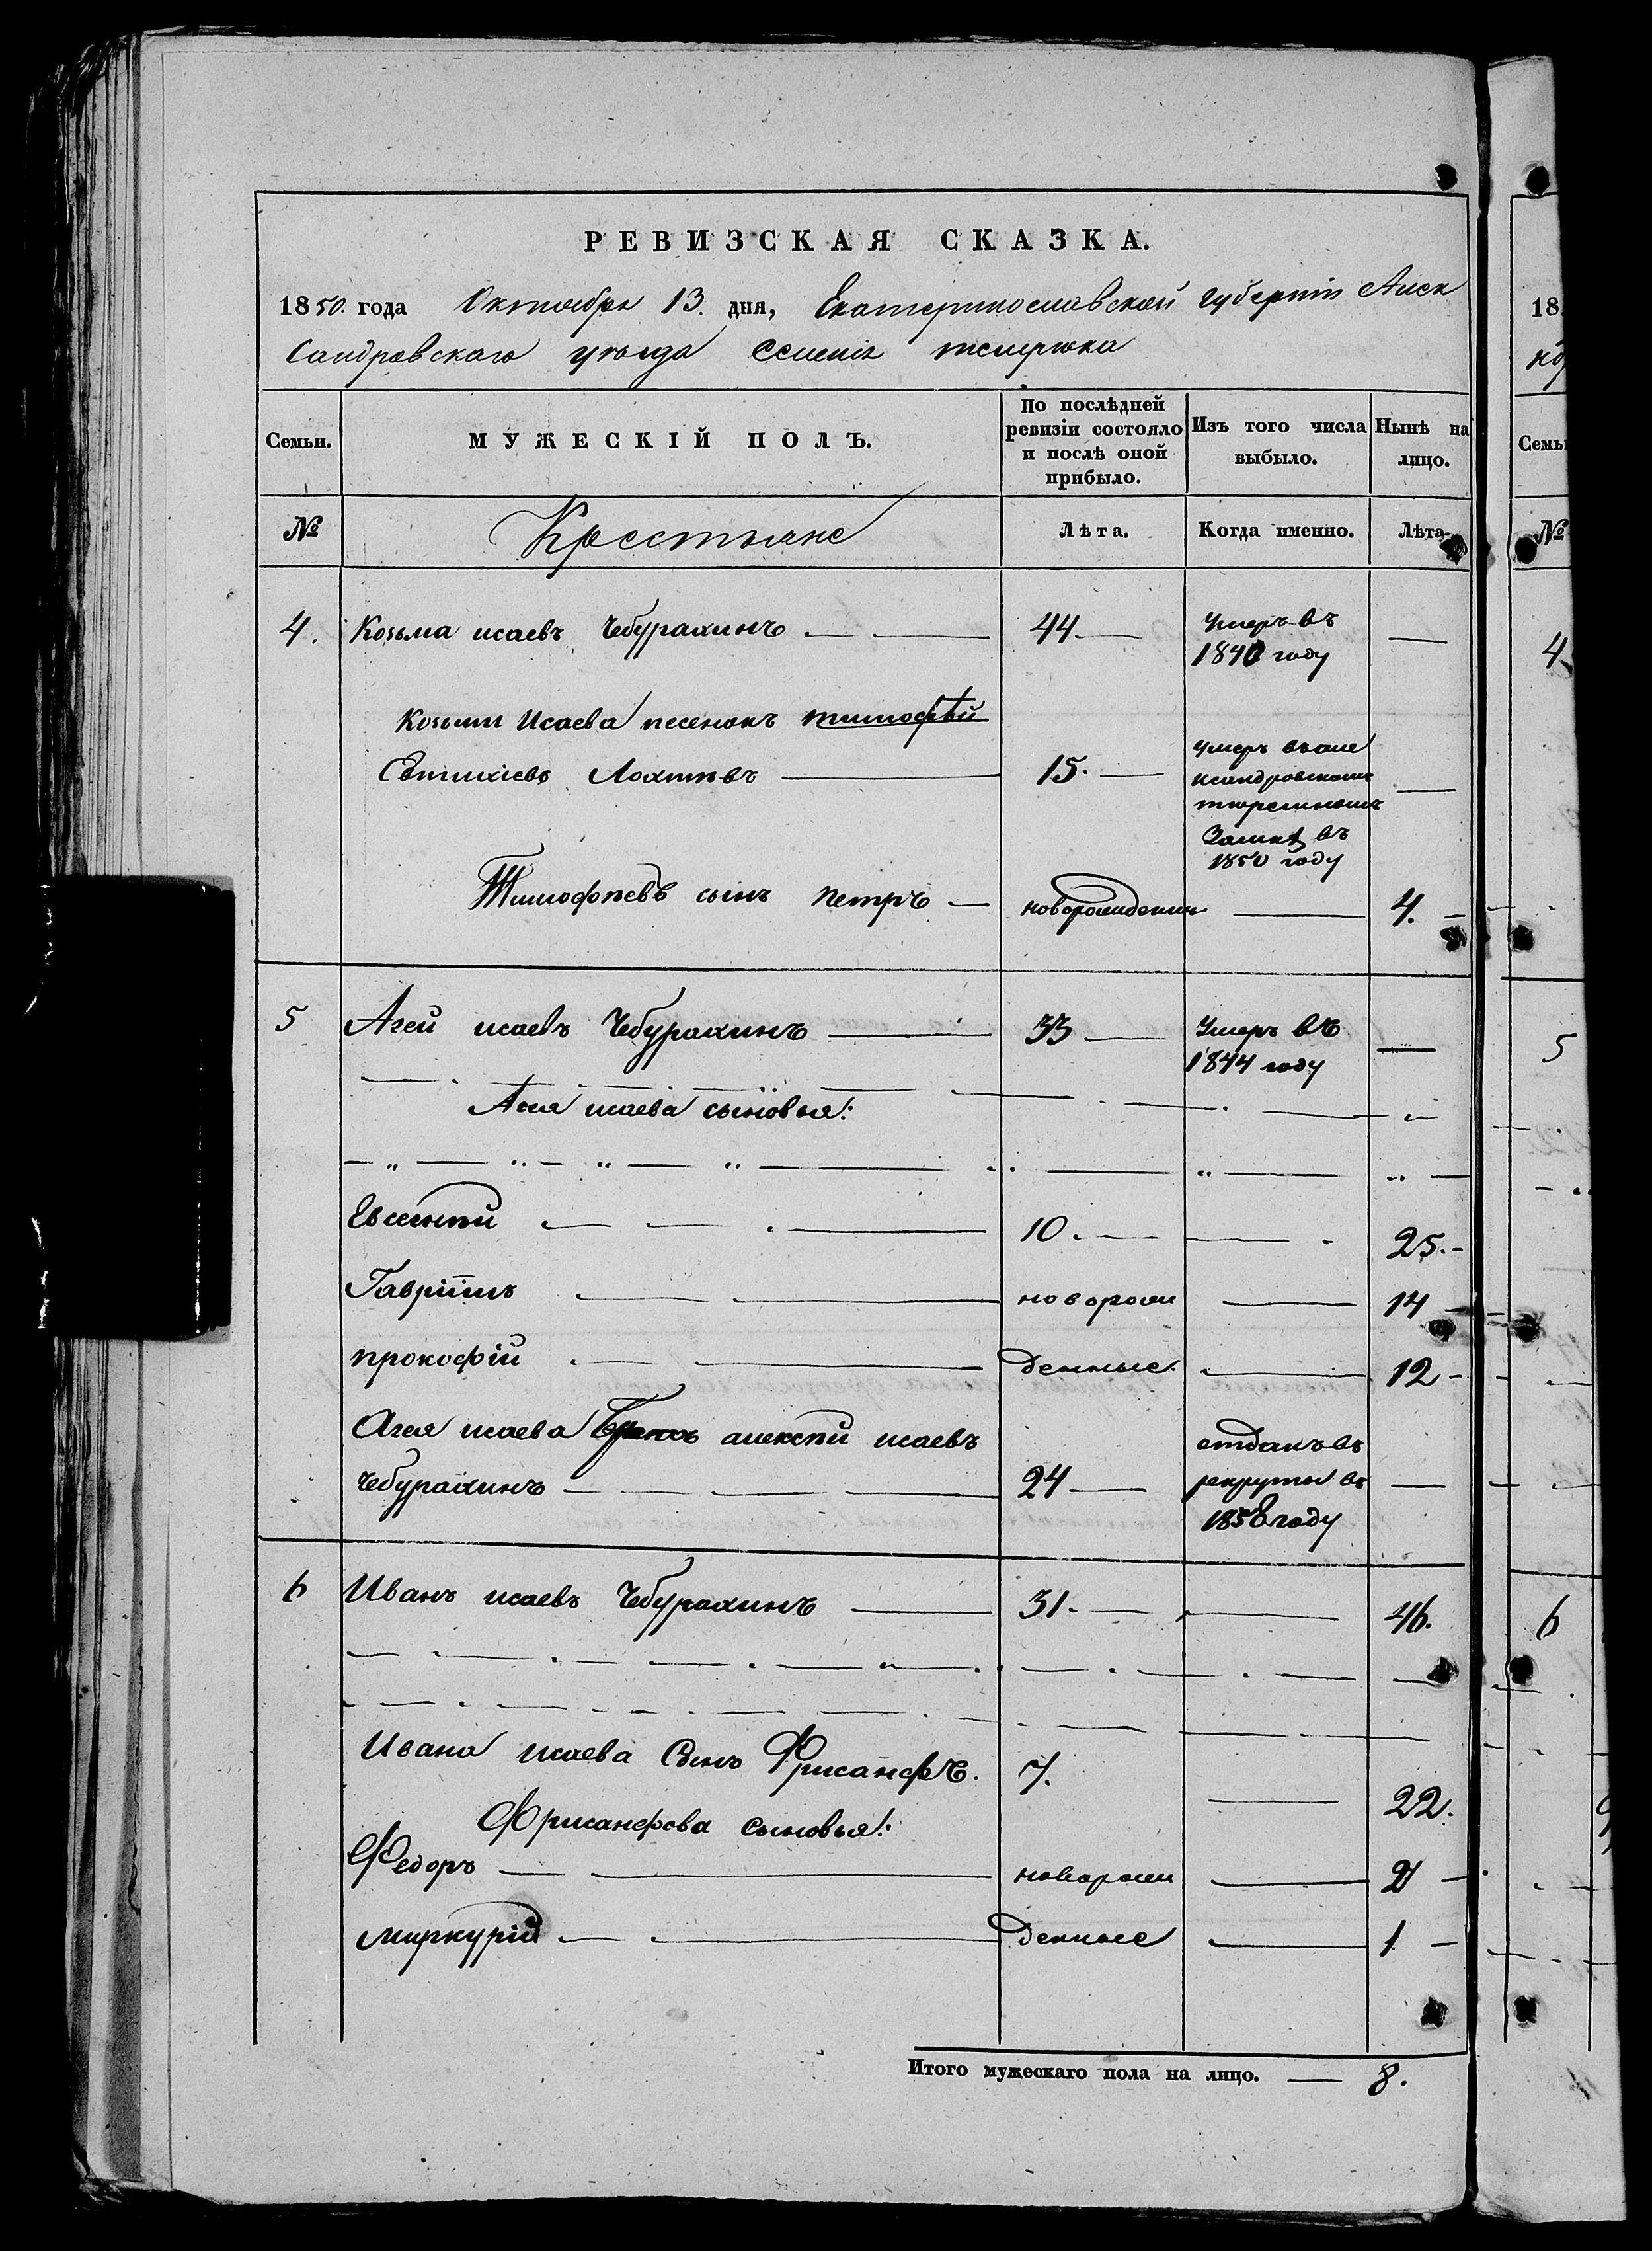 РЕВИЗСКАЯ СКАЗКА.
1850. года Октября 13. дня, Екатеринославской губерніи Алек
сандровскаго уѣзда селенія темрюка
Семьи.
МУЖЕСКІЙ ПОЛЪ.
По послѣдней ревизіи состояло и послѣ оной прибыло.
Изъ того числа выбыло.
Нынѣ на лицо.
№ Крестьяне Лѣта. Когда именно. Лѣта.
4. Козьма исаевъ Чебурахинъ 44 умеръ въ
1840 году
Козьми Исаева песенокъ тимофѣй
Евтихіевъ 15.
умеръ въ але
ксандровскомъ
тюремномъ
Замкѣ въ
1850 году
Тимофѣевъ сынъ петръ новорожденны 4.
5 Агей исаевъ Чебурахинъ 33 Умеръ въ
1844 году
Агея исаева сыновья:
Евсегнѣй 10. 25.
Гавріилъ новорож 14
прокофій денные. 12
Агея исаева Братъ алексѣй исаевъ
чебурахинъ 24
отданъ въ
рекруты въ
году
6 Иванъ исаевъ Чебурахинъ 31. 46.
Ивана исаева Сынъ Фрисанфъ. 7. 22.
Фрисанфова сыновья:
Федоръ новорож 2
миркурій денные 1
Итого мужескаго пола на лицо. 8.
18
Семьи
№
4
5
6